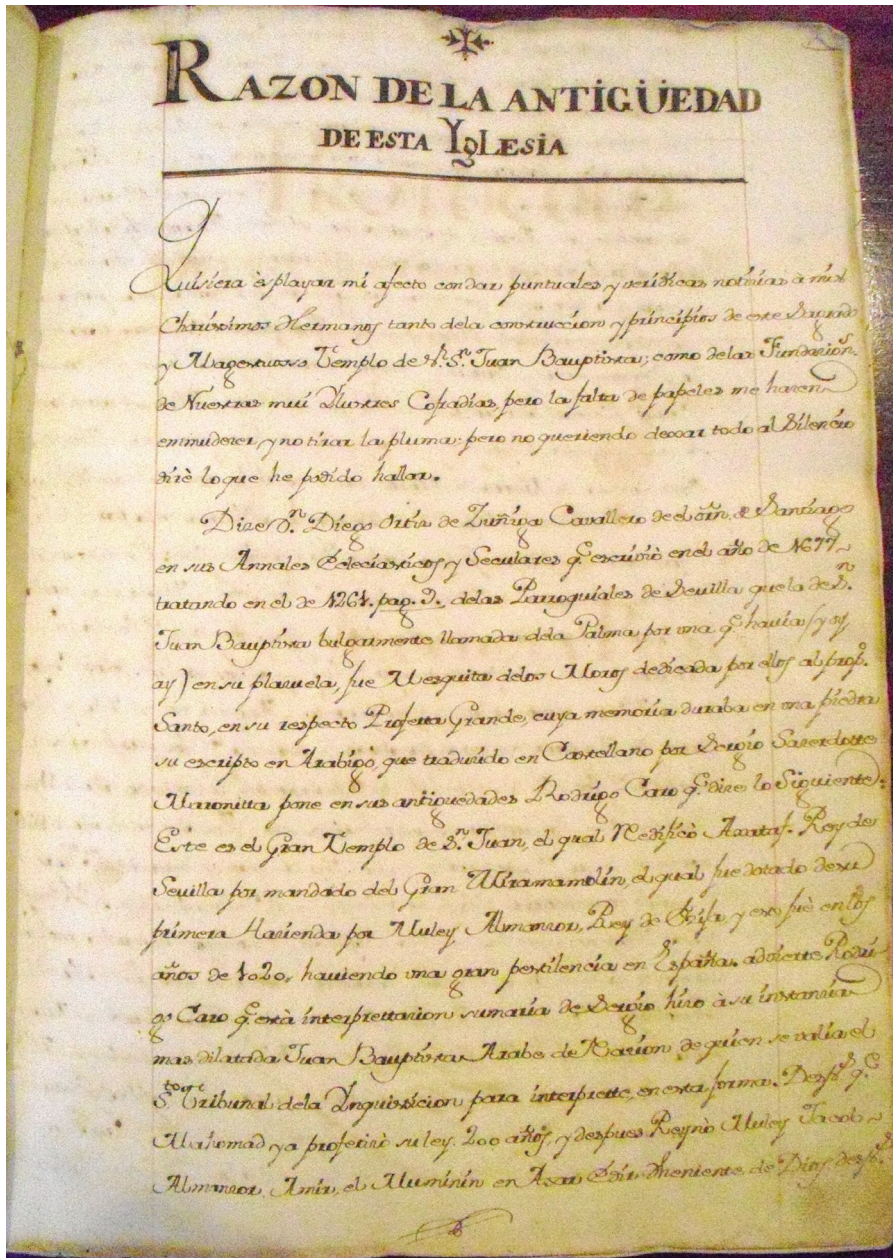 RAZON DE LA ANTIGÜEDAD
DE ESTA YGLESIA
Quisiera èsplayar mi afecto con dar puntuales y veridicas noticias à mis
Charissimos Hermanos tanto dela construccion y principios de este Sagrado
y Magestuoso Templo de Sr. Sn. Juan Bauptista; como de las Fundacions.
de Nuestras mui Ylustres Cofradias, pero la falta de papeles me hacen
enmudecer, y no tirar la pluma: pero no queriendo dexar todo al Silencio
dirè lo que he podido hallar.
Dice Dn. Diego Ortiz de Zuñiga Cavallero de el orn. de Santiago
en sus Annales Ecleciasticos, y Seculares qe. escribiò en el año de 1677
tratando en el de 1261. pag. 9. delas Parroquiales de Sevilla que la de Sn.
Juan Bauptista bulgarmente llamada dela Palma por una qe. havia (y oy
ay) en su plazuela, fue Mesquita delos Moros dedicada por ellos al propo.
Santo, en su respecto Profetta Grande, cuya memoria duraba en una piedra
su escripto en Arabigo, que traducido en Castellano por Sergio Sacerdotte
Maronitta pone en sus antiguedades Rodrigo Caro qe. dice lo Siguiente
Este es el Gran Templo de Sn. Juan, el qual Redificò Axataf. Rey de
Sevilla por mandado del Gran Miramamolin, el qual fue dotado de su
primera Hacienda por Muley Almanzor, Rey de y esto fuè en los
años de 1020, haviendo una gran pestilencia en España. advierte Rodri
go Caro qe. està interprettacion sumaria de Sergio hizo à su instancia
mas dilatada Juan Bauptista Arabe de Nacion de quien se valia el
Sto. Tribunal dela Ynquisicion para interprette, en esta forma. Desps. qe.
Mahomad ya profetizò su ley. 200 años, y despues Reynò Muley Jacob
Almanzor, Amir, el Muminin en Theniente de Dios desps.